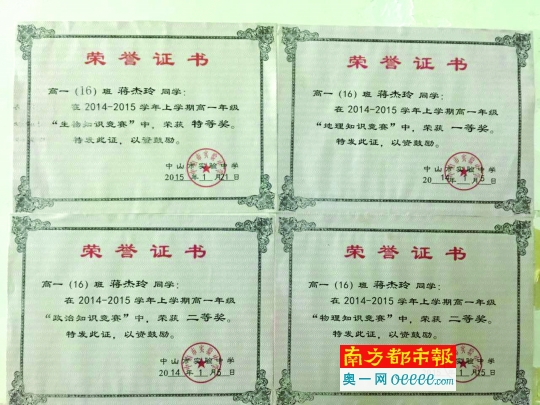 荣誉证书
高一 (16) 班 蒋杰玲 同学:
在 2014-2015 学年上学期高一年级
“生物知识竞赛”中，荣获 特等奖。
特发此证，以资鼓励。
中山市实验中学
2015年 1月21日
荣誉证书
高一 (16) 班 蒋杰玲 同学:
在 2014-2015 学年上学期高一年级
“地理知识竞赛”中，荣获 一等奖。
特发此证，以资鼓励。
中山市实验中学
荣誉证书
高一 (16) 班 蒋杰玲 同学:
在 2014-2015 学年上学期高一年级
“政治知识竞赛”中，荣获 二等奖。
特发此证，以资鼓励。
中山市实验中学
荣誉证书
高一 (16) 班 蒋杰玲 同学:
在 2014-2015 学年上学期高一年级
“物理知识竞赛”中，荣获 二等奖。
特发此证，以资鼓励。
南方都市报
奥一网 oeeee.com